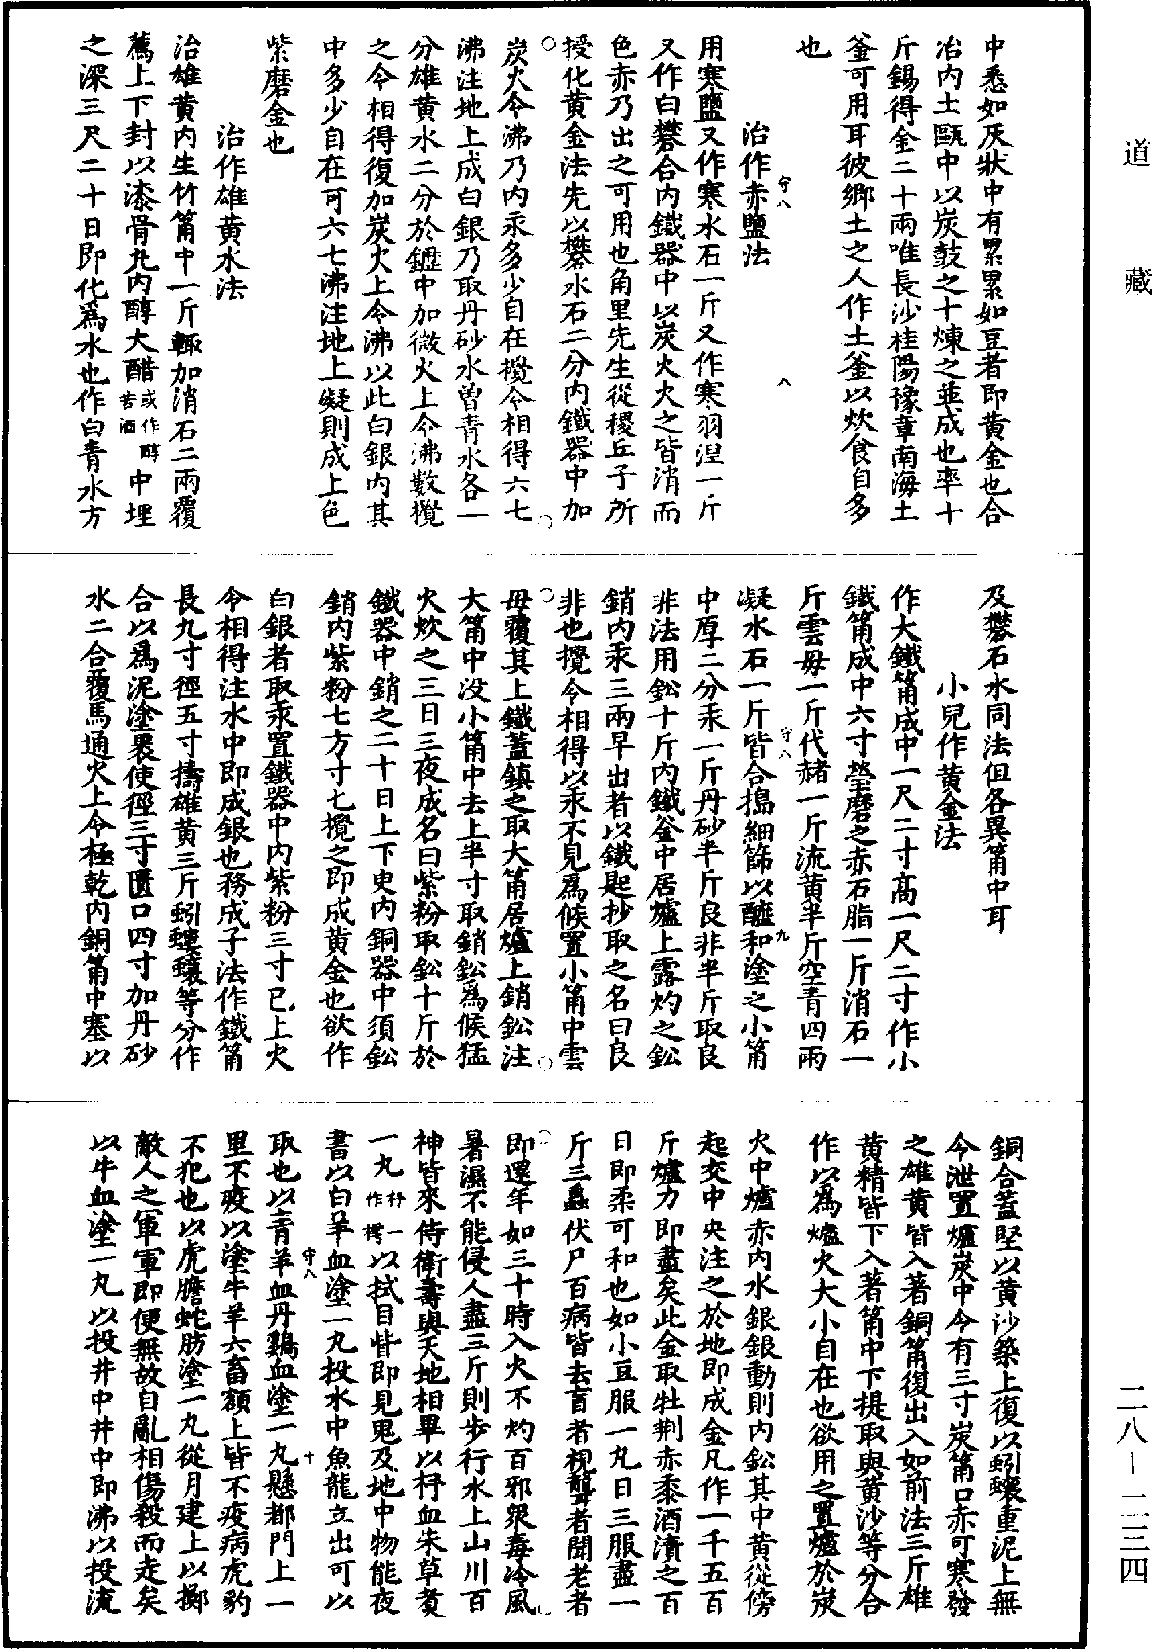 中悉如灰狀中有累累如豆者即黃金也合
治內土甌中以炭鼓之十煉之並成也率十
斤錫得金二十兩唯長沙桂陽豫章南海土
釜可用耳彼鄉土之人作土釜以炊食自多
也
治作赤鹽法
用寒鹽又作寒水石一斤又作寒羽涅一斤
又作白礬合內鐵器中以炭火火之皆消而
色赤乃出之可用也角里先生從稷丘子所
授化黃金法先以礬水石二分內鐵器中加
炭火令沸乃內汞多少自在攪令相得六七
沸注地上成白銀乃取丹砂水曾青水各一
分雄黃水二分於䥶中加微火上令沸數攪
之令相得復加炭火上令沸以此白銀內其
中多少自在可六七沸注地上凝則成上色
紫磨金也
治作雄黃水法
治雄黃內生竹筩中一斤輒加消石二兩覆
薦上下封以漆骨丸內醇大醋或作醇苦酒中埋
之深三尺二十日即化為水也作白青水方
及礬石水同法但各異筩中耳
小兒作黃金法
作大鐵筩成中一尺二寸高一尺二寸作小
鐵筩成中六寸瑩磨之赤石脂一斤消石一
斤雲母一斤代赭一斤流黃半斤空青四兩
凝水石一斤皆合搗細篩以醯和塗之小筩
中厚二分汞一斤丹砂半斤良非半斤取良
非法用鉛十斤內鐵釜中居爐上露灼之鉛
銷內汞三兩早出者以鐵匙抄取之名曰良
非也攪令相得以汞不見為候置小筩中雲
母覆其上鐵蓋鎮之取大筩居爐上銷鉛注
大筩中沒小筩中去上半寸取銷鉛為候猛
火炊之三日三夜成名曰紫粉取鉛十斤於
鐵器中銷之二十日上下更內銅器中須鉛
銷內紫粉七方寸七攪之即成黃金也欲作
白銀者取汞置鐵器中內紫粉三寸已上火
令相得注水中即成銀也務成子法作鐵筩
長九寸徑五寸擣雄黃三斤蚓螻壤等分作
合以為泥塗裹使徑三寸匱口四寸加丹砂
水二合覆馬通火上令極乾內銅筩中塞以
銅合蓋堅以黃沙築上復以蚓壤重泥上無
令泄置爐炭中令有三寸炭筩口赤可寒發
之雄黃皆入著銅筩復出入如前法三斤雄
黃精皆下入著筩中下提取與黃沙等分合
作以為爐火大小自在也欲用之置爐於炭
火中爐赤內水銀銀動則內鉛其中黃從傍
起交中央注之於地即成金凡作一千五百
斤爐力即盡矣此金取牡荊赤黍酒漬之百
日即柔可和也如小豆服一丸日三服盡一
斤三蟲伏尸百病皆去盲者視聾者聞老者
即還年如三十時入火不灼百邪眾毒冷風
暑濕不能侵人盡三斤則步行水上山川百
神皆來侍衛壽與天地相畢以杼血朱草煮
一丸杼一作樗以拭目眥即見鬼及地中物能夜
書以白羊血塗一丸投水中魚龍立出可以
取也以青羊血丹雞血塗一丸懸都門上一
里不疫以塗牛羊六畜額上皆不疫病虎豹
不犯也以虎膽蛇肪塗一丸從月建上以擲
敵人之軍軍即便無故自亂相傷殺而走矣
以牛血塗一丸以投井中井中即沸以投流
守八
八
守八
九
守八
十
道藏
二八-二三四